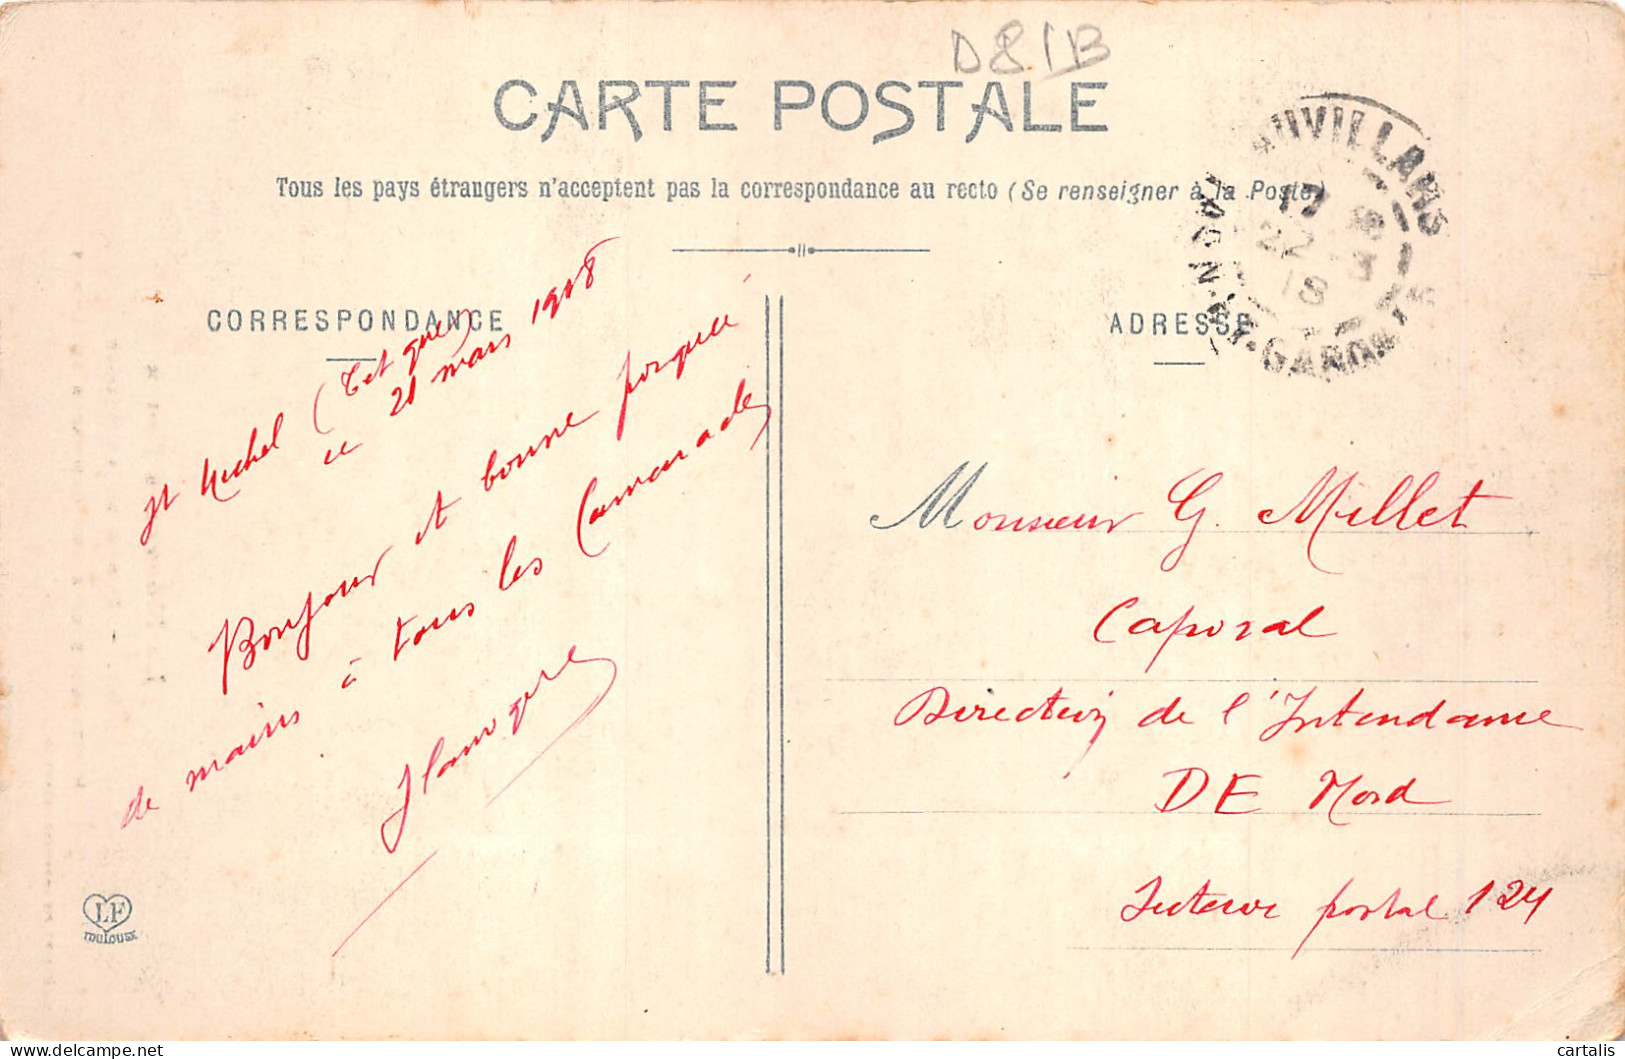 D81B
CARTE POSTALE
Tous les pays étrangers n'acceptent pas la correspondance au recto (Se renseigner à la Poste)
CORRESPONDANCE
St Michel (Tet gne)
ce 21 mars 1918
Bonjour et bonne poignée
de mains à tous les Camarades
LF
TOULOUSE
ADRESSE
AUVILLARS
TARN-ET-GARONNE
17
22 -3
18
Monsieur G. Millet
Caporal
Direction de l'Intendance
DE Nord
Secteur postal 124
cartalis